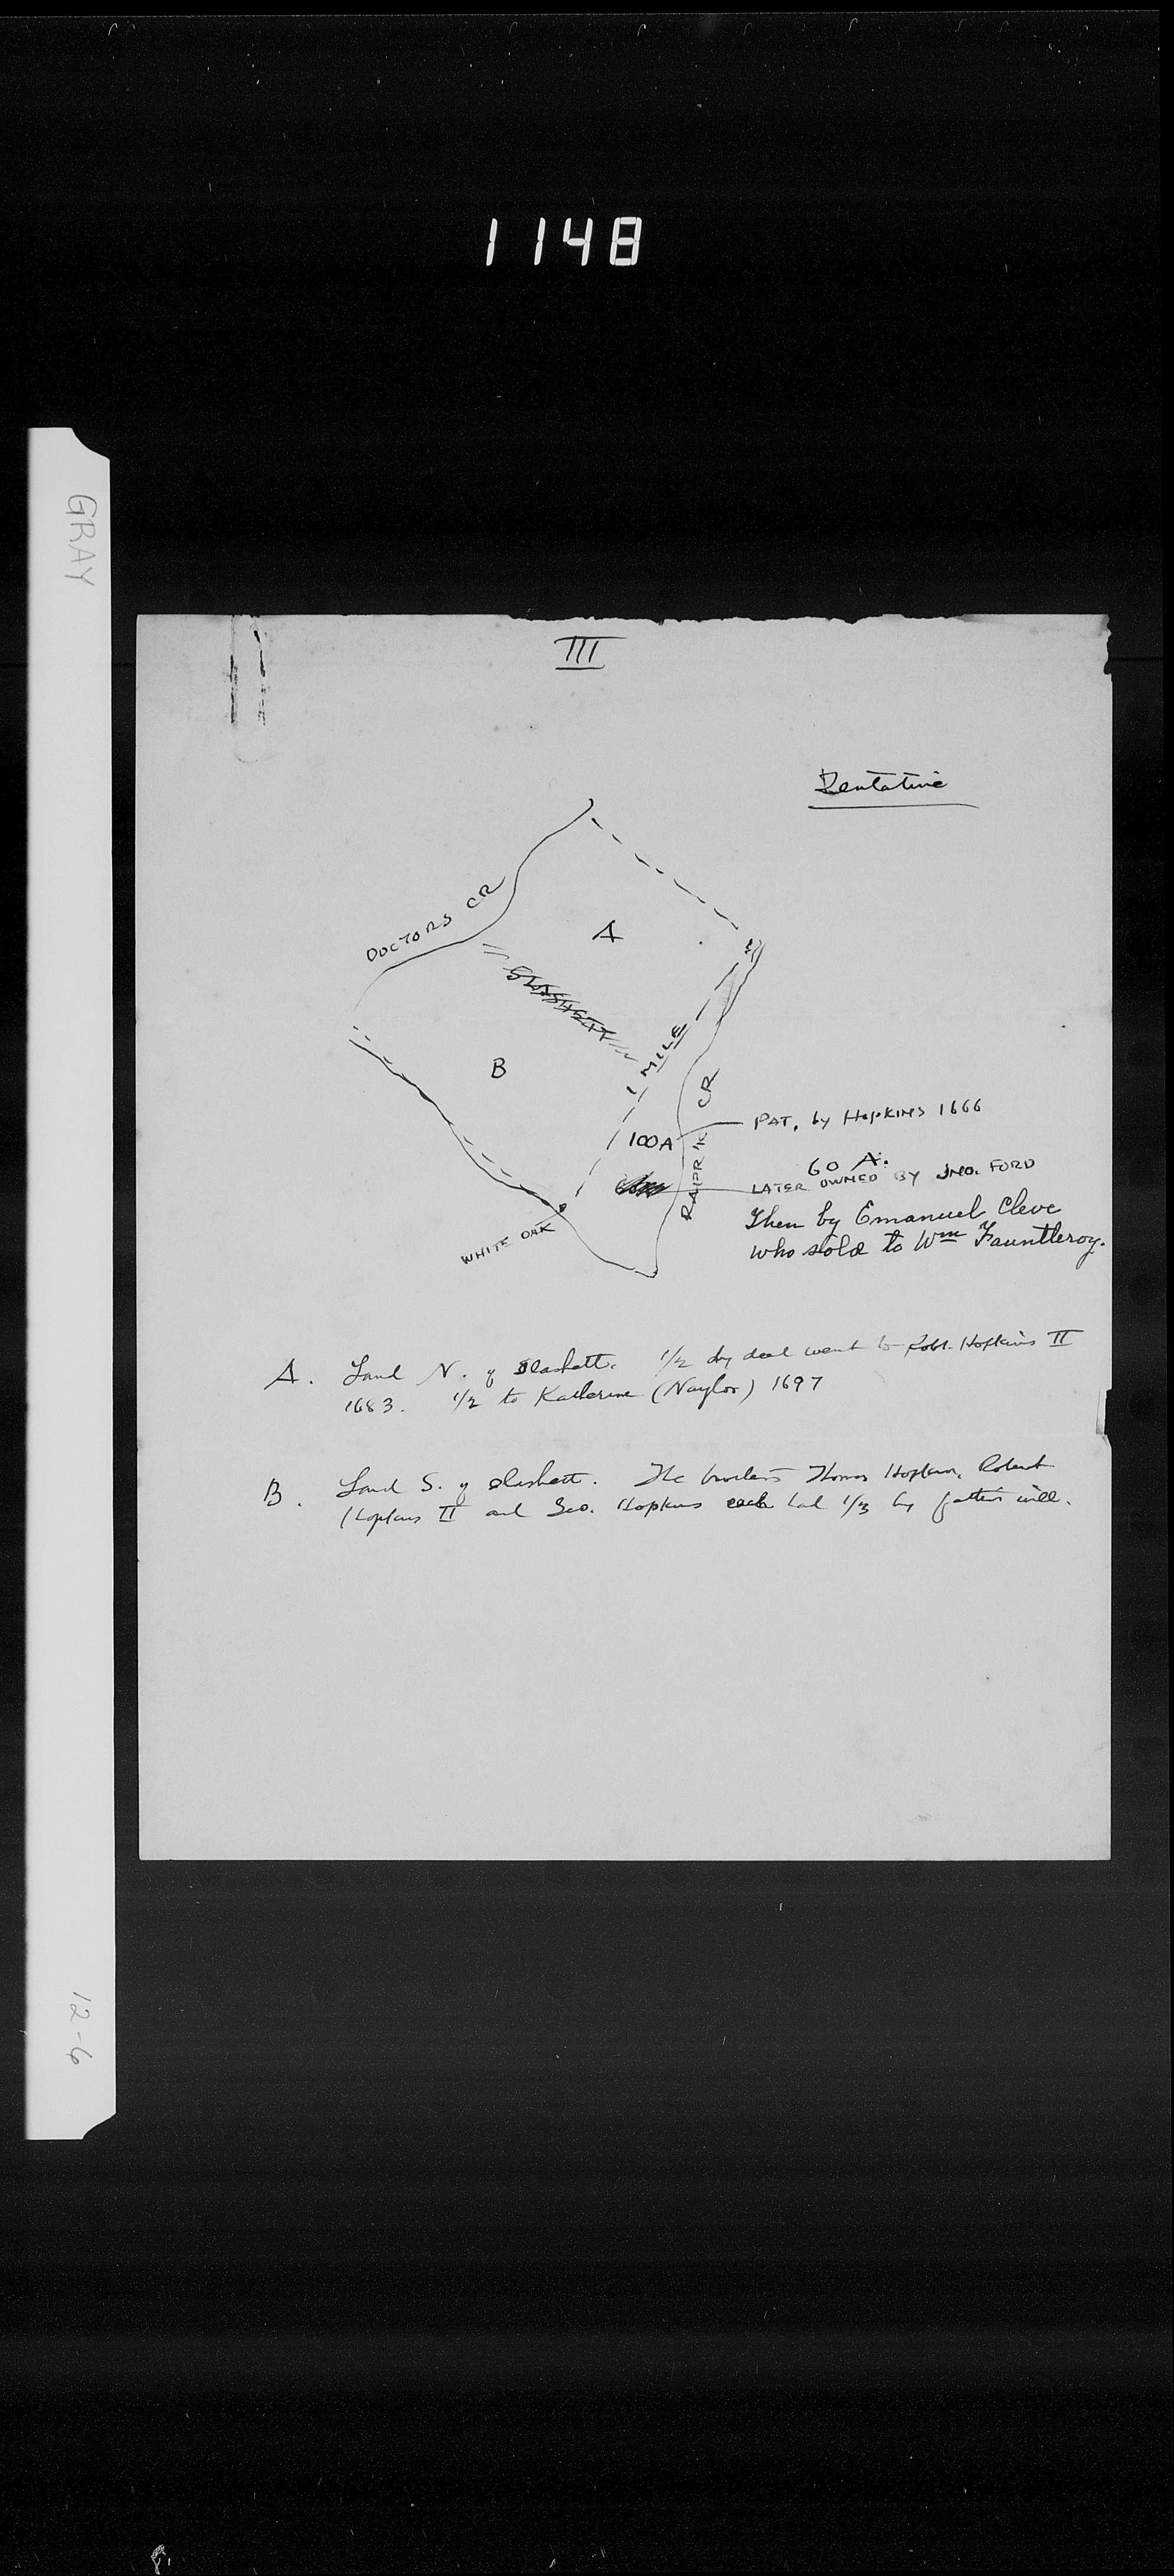 1148
GRAY
12-6
III
Tentative
DOCTORS CR
A
SLASHETT
B
1 MILE
CR
PAT. by HOPKINS 1666
100A
60 A.
LATER OWNED BY JNO. FORD
Then by Emanuel Cleve
who sold to Wm Fauntleroy.
WHITE OAK
A. Land N. of Slashett. 1/2 by deed went to Robt. Hopkins II
1683. 1/2 to Katherine (Naylor) 1697
B. Land S. of slashett. The brothers Thomas Hopkins, Robert
Hopkins II and Geo. Hopkins each had 1/3 by father's will.